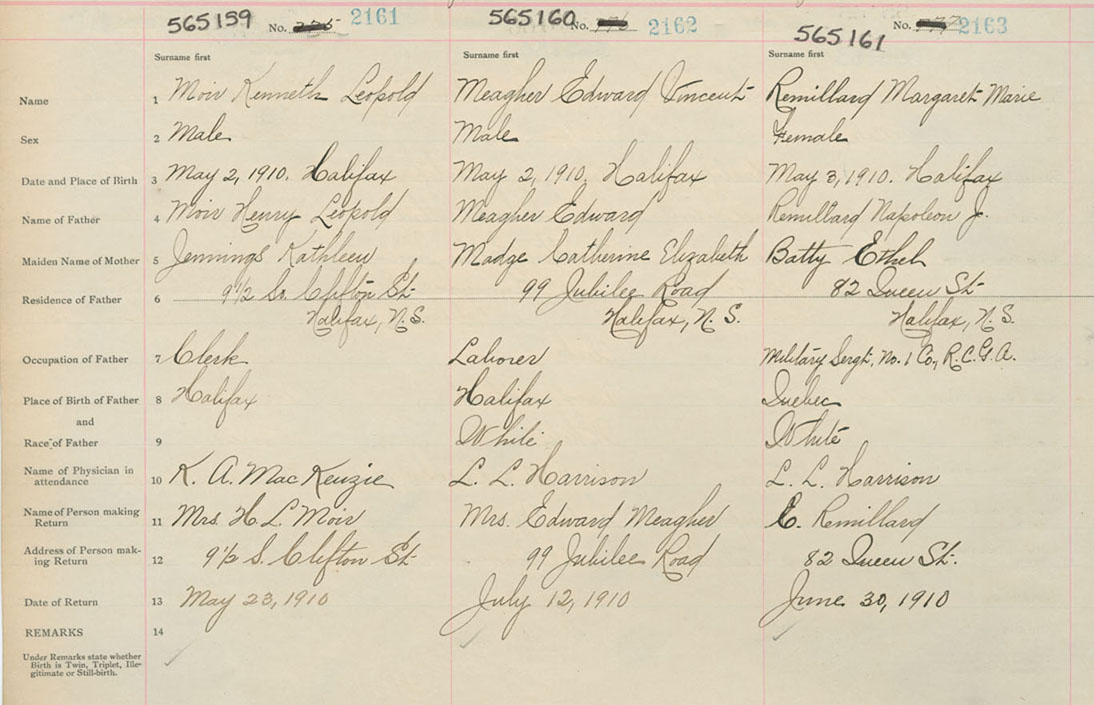 565159 No. 2161 565160 No. 2162 565161 No. 2163
Surname first Surname first Surname first
Name 1 Moir Kenneth Leopold Meagher Edward Vincent Remillard Margaret Marie
Sex 2 Male Male Female
Date and Place of Birth 3 May 2, 1910. Halifax May 2, 1910. Halifax May 3, 1910. Halifax
Name of Father 4 Moir Henry Leopold Meagher Edward Remillard Napoleon J.
Maiden Name of Mother 5 Jennings Kathleen Madge Catherine Elizabeth Batty Ethel
Residence of Father 6 9 1/2 So. Clifton St. 99 Jubilee Road 82 Queen St.
Halifax, N.S. Halifax, N.S. Halifax, N.S.
Occupation of Father 7 Clerk Laborer Military Sergt., No. 1 Co., R.C.G.A.
Place of Birth of Father 8 Halifax Halifax Quebec
and
Race of Father 9 White White
Name of Physician in
attendance 10 K. A. MacKenzie L. L. Harrison L. L. Harrison
Name of Person making
Return 11 Mrs. H. L. Moir Mrs. Edward Meagher E. Remillard
Address of Person mak-
ing Return 12 9 1/2 S. Clifton St. 99 Jubilee Road 82 Queen St.
Date of Return 13 May 23, 1910 July 12, 1910 June 30, 1910
REMARKS 14
Under Remarks state whether
Birth is Twin, Triplet, Ille-
gitimate or Still-birth.